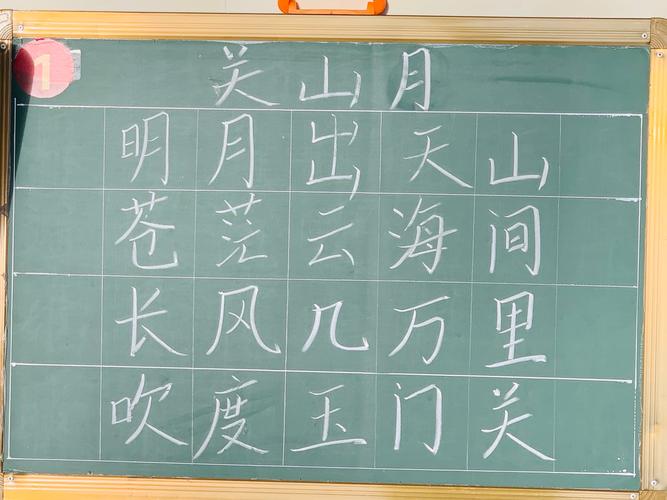 1
关山月
明月出天山
苍茫云海间
长风几万里
吹度玉门关